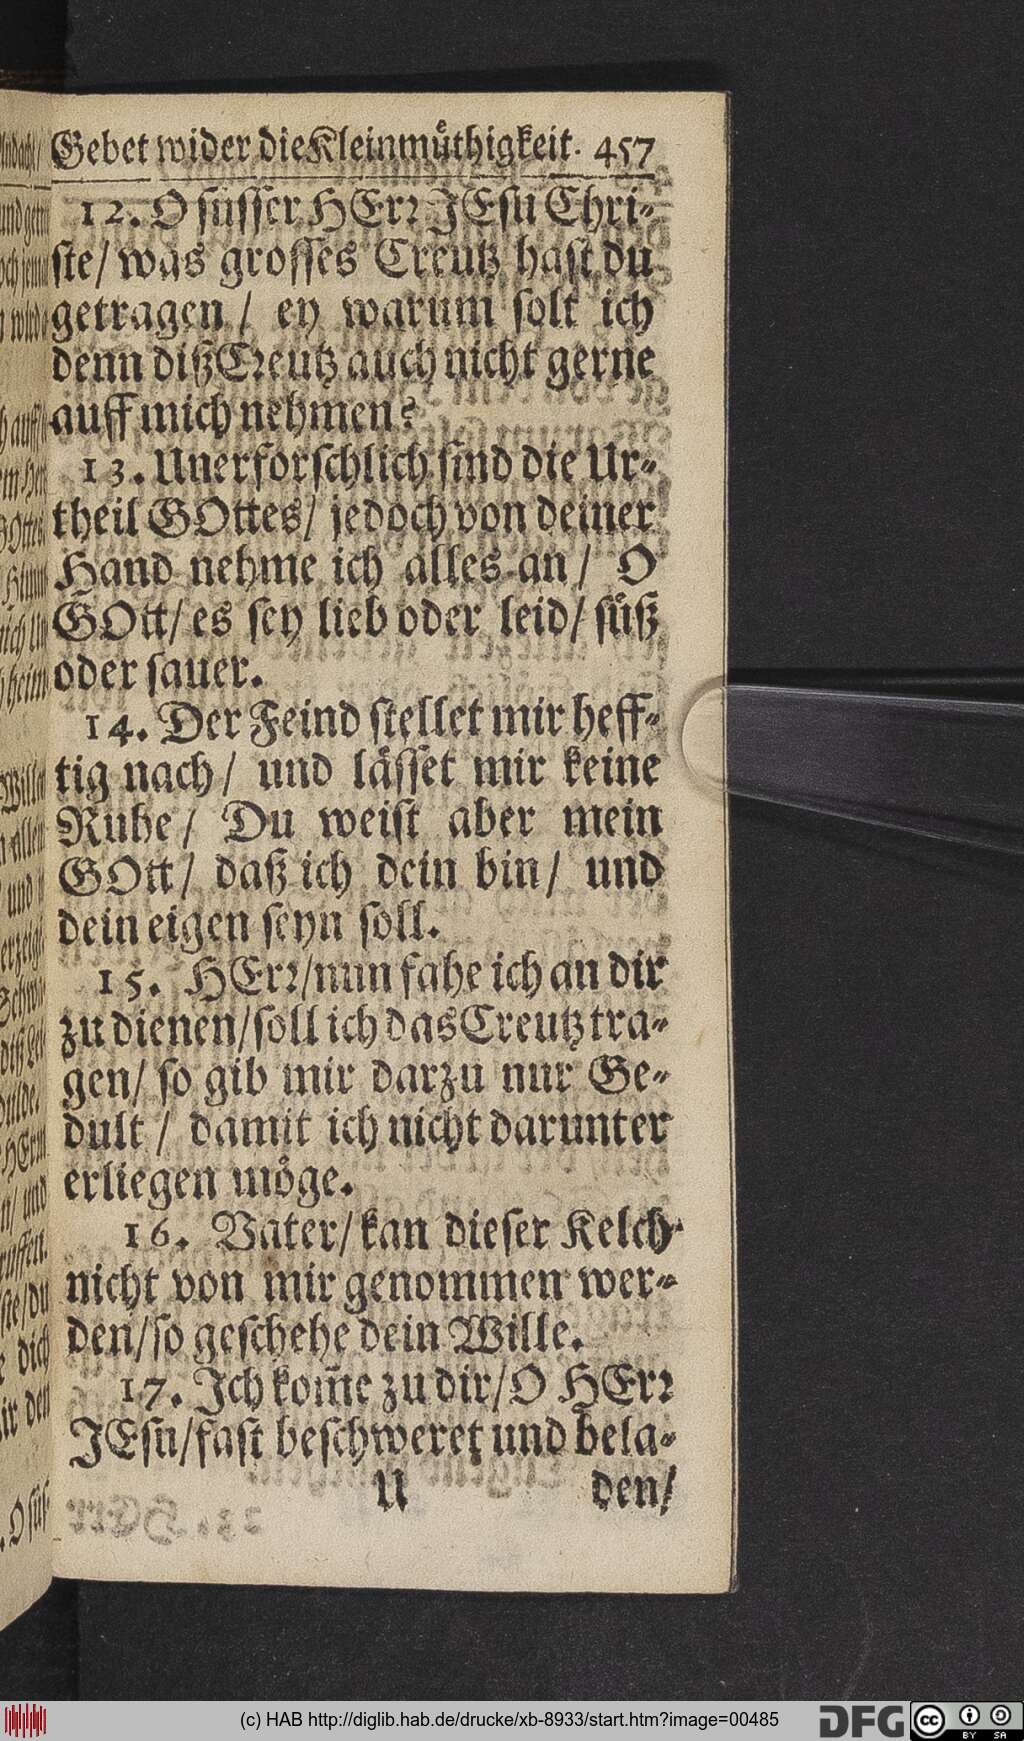 Gebet wider die Kleinmuͤthigkeit. 457
12. O ſuͤſſer HErꝛ JEſu Chri⸗
ſte/ was groſſes Creutz haſt du
getragen/ ey warum ſolt ich
denn diß Creutz auch nicht gerne
auff mich nehmen?
13. Unerforſchlich ſind die Ur⸗
theil GOttes/ jedoch von deiner
Hand nehme ich alles an/ O
GOtt/ es ſey lieb oder leid/ ſuͤß
oder ſauer.
14. Der Feind ſtellet mir heff⸗
tig nach/ und laͤſſet mir keine
Ruhe/ Du weiſt aber mein
GOtt/ daß ich dein bin/ und
dein eigen ſeyn ſoll.
15. HErꝛ/ nun fahe ich an dir
zu dienen/ ſoll ich das Creutz tra⸗
gen/ ſo gib mir darzu nur Ge⸗
dult/ damit ich nicht darunter
erliegen moͤge.
16. Vater/ kan dieſer Kelch
nicht von mir genommen wer⸗
den/ ſo geſchehe dein Wille.
17. Ich kom̃e zu dir/ O HErꝛ
JEſu/ faſt beſchweret und bela⸗
U den/
(c) HAB http://diglib.hab.de/drucke/xb-8933/start.htm?image=00485
DFG
cc
BY SA